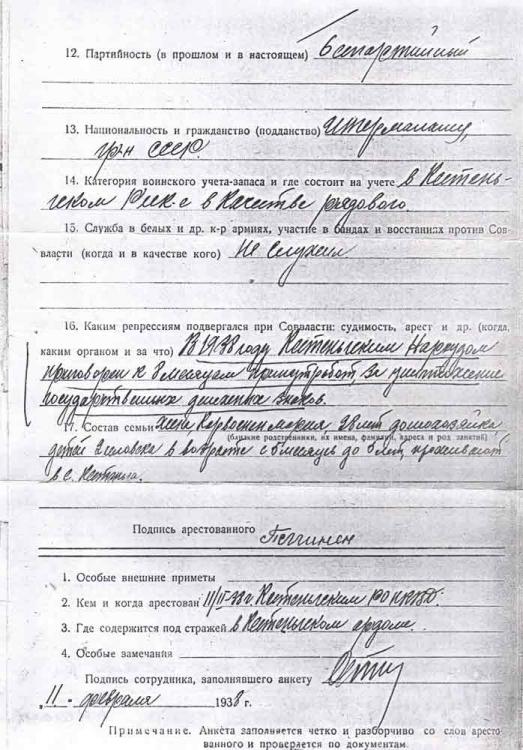 12. Партийность (в прошлом и в настоящем) Беспартийный
13. Национальность и гражданство (подданство) Ингерманланец,
гр-н СССР.
14. Категория воинского учета-запаса и где состоит на учете в Кестень-
гском Рик-е в качестве рядового.
15. Служба в белых и др. к-р армиях, участие в бандах и восстаниях против Сов-
власти (когда и в качестве кого) не служил
16. Каким репрессиям подвергался при Соввласти: судимость, арест и др. (когда,
каким органом и за что) В 1938 году Кестеньгским Нарсудом
приговорен к 8 месяцам принудработ за уничтожение
государственных денежных знаков.
17. Состав семьи жена Мария, 28 лет домохозяйка
(близкие родственники, их имена, фамилии, адреса и род занятий)
детей 2 человека в возрасте с 8 месяцев до лет, проживают
в с. Кестеньга.
Подпись арестованного
1. Особые внешние приметы
2. Кем и когда арестован 11/II-38 г. Кестеньгским РО НКВД.
3. Где содержится под стражей в Кестеньгском ардоме.
4. Особые замечания
Подпись сотрудника, заполнявшего анкету
„11 - февраля 1938 г.
Примечание. Анкета заполняется четко и разборчиво со слов аресто-
ванного и проверяется по документам.